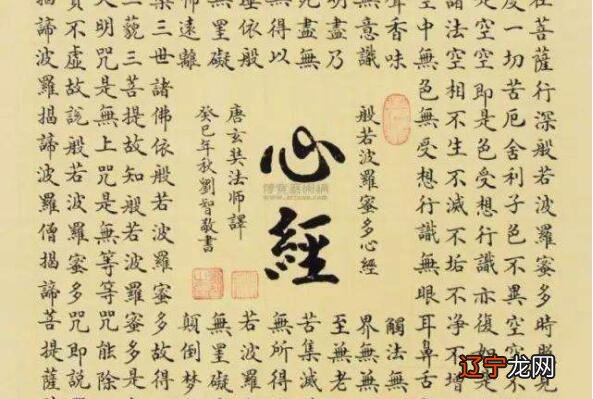 在菩薩行深般若波羅蜜多時照見
度一切苦厄舍利子色不異空空不
是空空即是色受想行識亦復如是
諸法空相不生不滅不垢不淨不增
空中無色無受想行識無眼耳鼻舌
聲香味
無意識
明盡乃
死盡無
無得以
埵依般
無罣礙
怖遠離
般若波羅蜜多心經
心經
唐玄奘法師譯
癸巳年秋劉智敬書
觸法無
界無無
至無老
苦集滅
無所得
若波羅
無罣礙
顛倒夢
槃三世諸佛依般若波羅蜜多故得
三藐三菩提故知般若波羅蜜多是
大明咒是無上咒是無等等咒能除
實不虛故說般若波羅蜜多咒即說
揭諦波羅揭諦波羅僧揭諦菩提薩
辽宁龙网